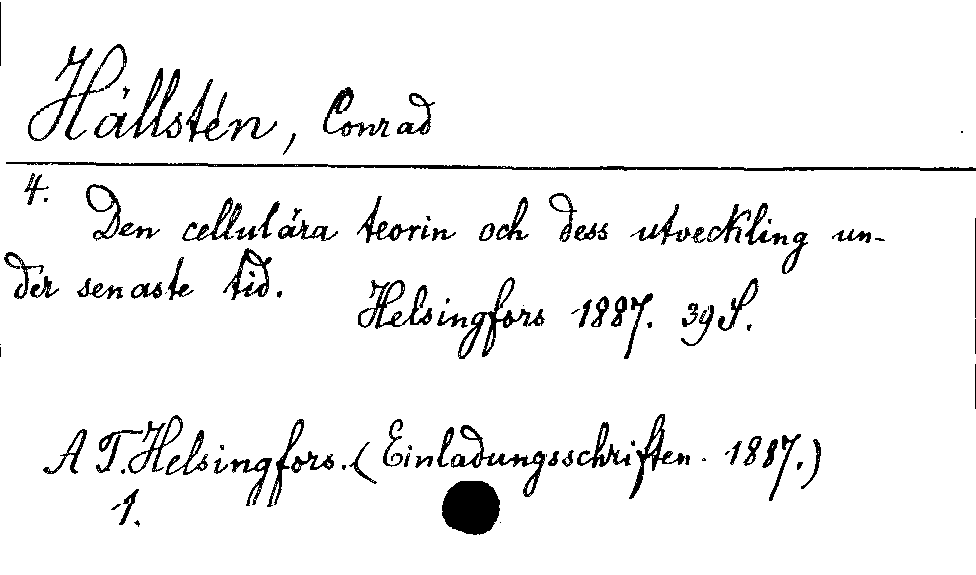 Hällstén, Conrad
4.
Den cellulära teorin och dess utveckling un-
der senaste tid.
Helsingfors 1887. 39 S.
A T. Helsingfors. (Einladungsschriften. 1887.)
1.